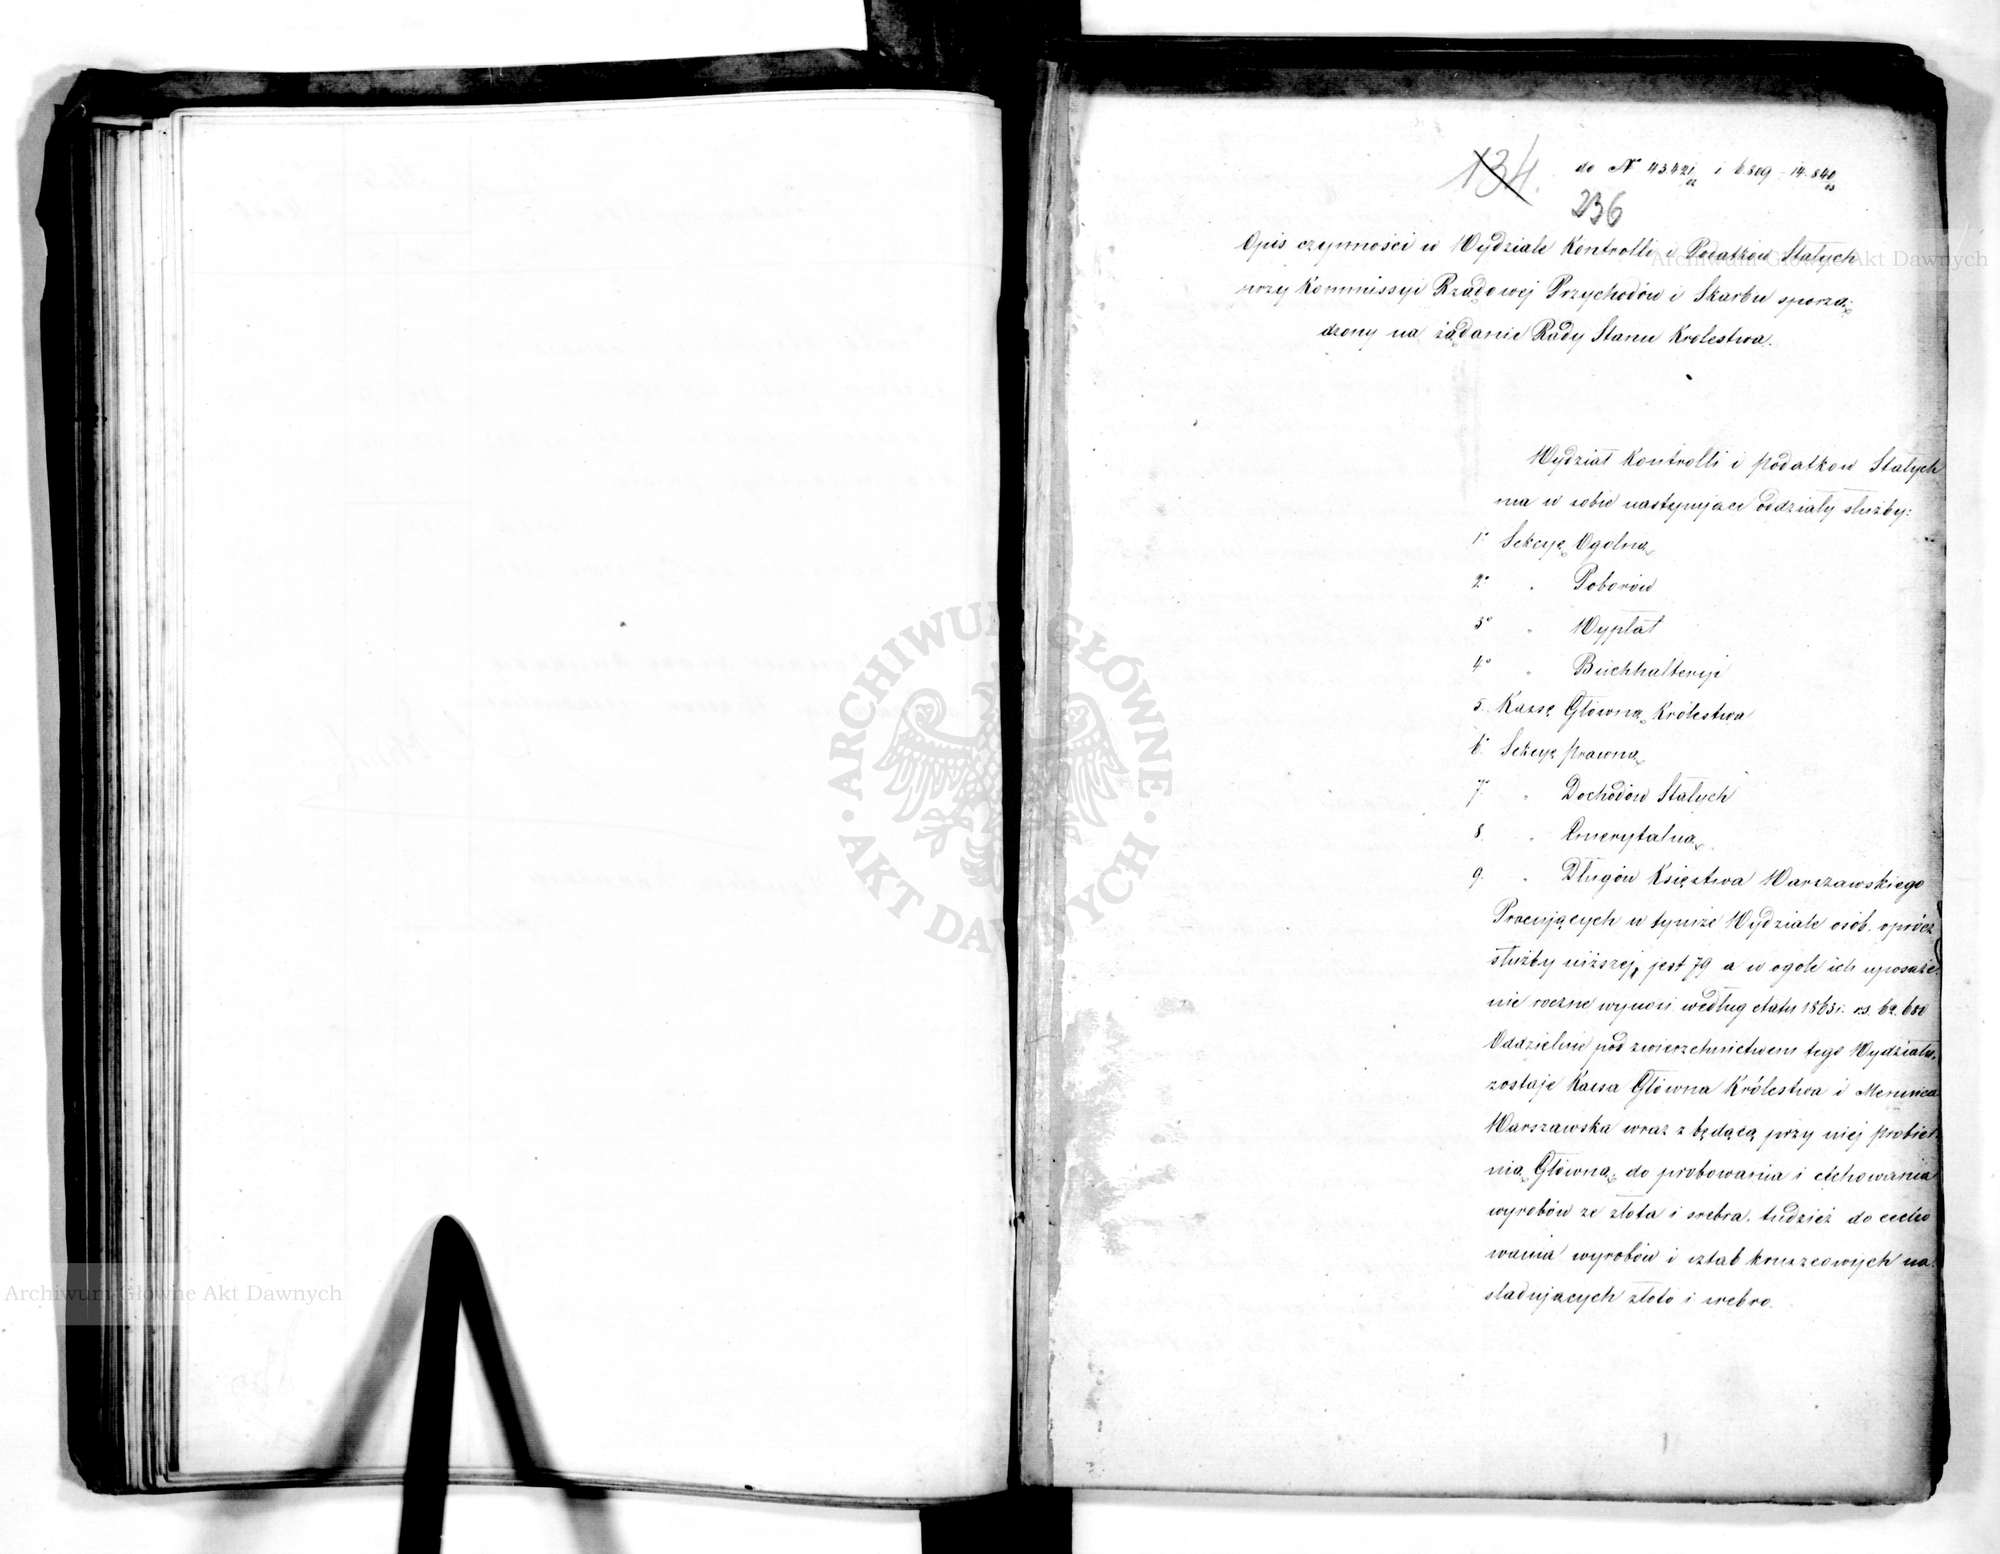 134.
do № 43421/62 i 6.809 – 14.840/63
236
Opis czynności w Wydziale Kontrolli i Podatków Stałych
przy Kommissyi Rządowej Przychodów i Skarbu sporzą-
dzony na żądanie Rady Stanu Królestwa.
Wydział Kontrolli i podatkow Stałych
ma w sobie następujące oddziały służby:
1° Sekcyę Ogolną
2° " Poborów
3° " Wypłat
4° " Buchhalteryi
5. Kassę Główną Królestwa
6° Sekcyę prawną
7. " Dochodów Stałych
8. " Emerytalną
9. " Długów Księstwa Warszawskiego
Pracujących w tymże Wydziale osób, oprócz
służby niższej, jest 79 a w ogole ich uposaże-
nie roczne wynosi według etatu 1863 r. rs. 62.680
Oddzielnie pod zwierzchnictwem tego Wydziału,
zostaje Kassa Główna Królestwa i Mennica
Warszawska wraz z będącą przy niej probier-
nią Główną, do probowania i cichowania
wyrobów ze złota i srebra, tudzież do cecho
wania wyrobów i sztab kruszcowych na-
sladujących złoto i srebro.
ARCHIWUM GŁÓWNE AKT DAWNYCH
Archiwum Główne Akt Dawnych
Archiwum Główne Akt Dawnych